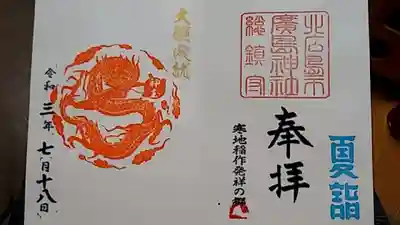 夏詣
奉拝
北広島市
廣島神社
総鎮守
寒地稲作発祥の郷
大願成就
令和三年七月十八日